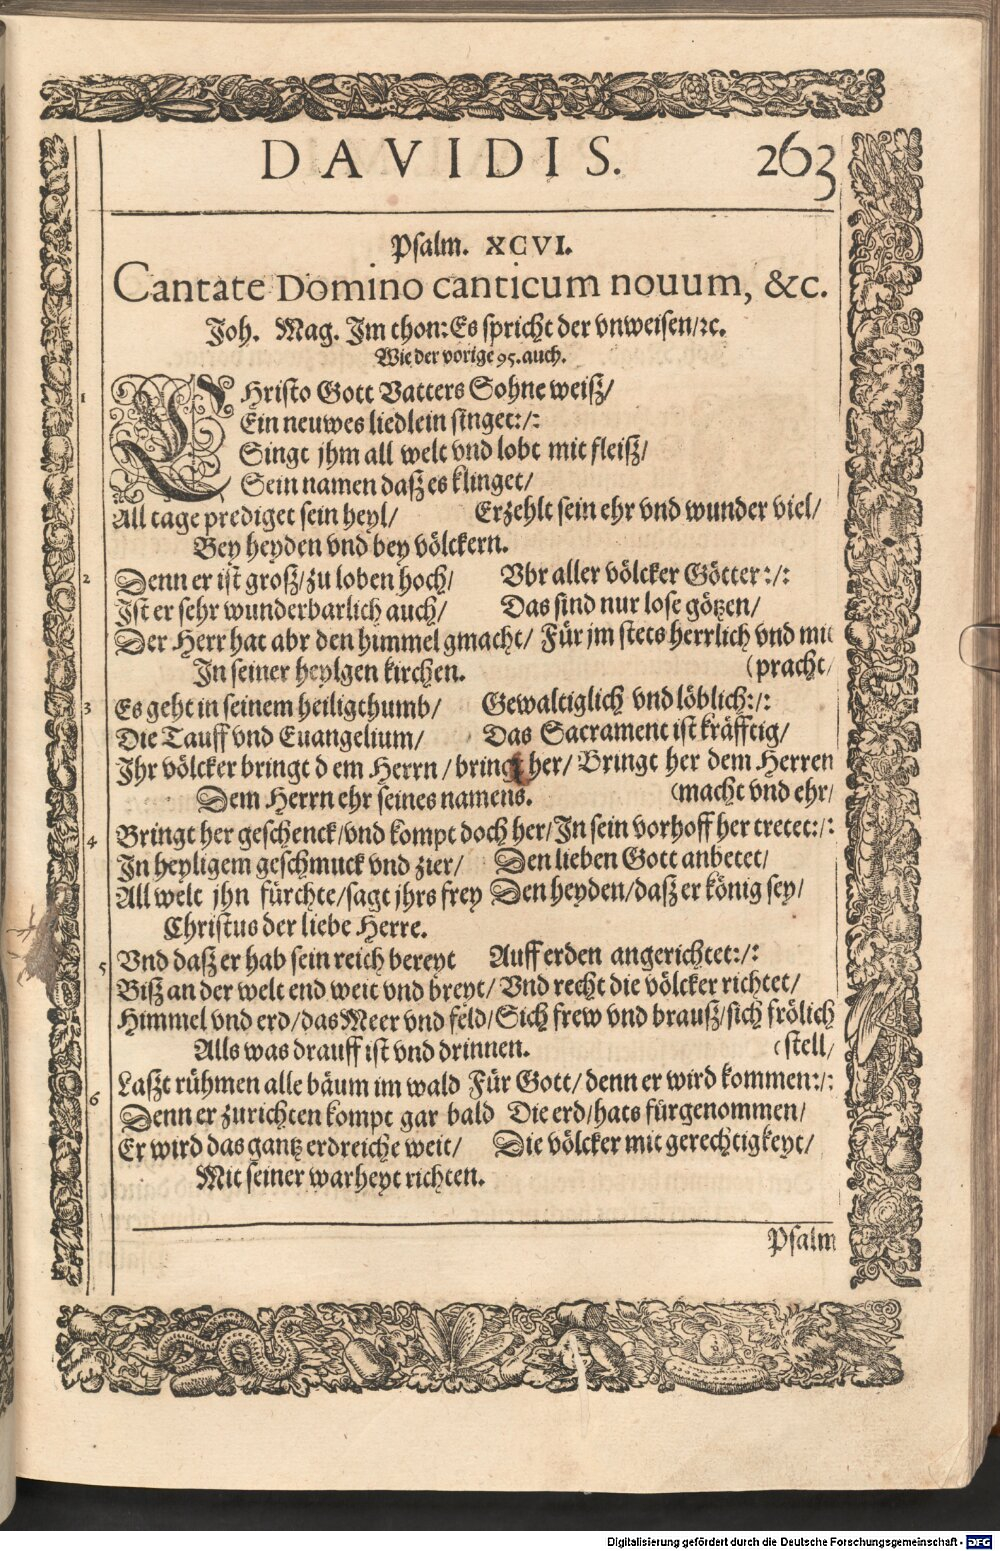 DAVIDIS. 263
Psalm. XCVI.
Cantate Domino canticum nouum, &c.
Joh. Mag. Im thon: Es spricht der vnweisen/ꝛc.
Wie der vorige 95. auch.
1 Hristo Gott Vatters Sohne weiß/
Ein neuwes liedlein singet:/:
Singt jhm all welt vnd lobt mit fleiß/
Sein namen daß es klinget/
All tage prediget sein heyl/ Erzehlt sein ehr vnd wunder viel/
Bey heyden vnd bey völckern.
2 Denn er ist groß/zu loben hoch/ Vbr aller völcker Götter:/:
Ist er sehr wunderbarlich auch/ Das sind nur lose götzen/
Der Herr hat abr den himmel gmacht/ Für jm stets herrlich vnd mit
In seiner heylgen kirchen. (pracht/
3 Es geht in seinem heiligthumb/ Gewaltiglich vnd löblich:/:
Die Tauff vnd Euangelium/ Das Sacrament ist kräfftig/
Ihr völcker bringt dem Herrn/bringt her/ Bringt her dem Herren
Dem Herrn ehr seines namens. (macht vnd ehr/
4 Bringt her geschenck/vnd kompt doch her/In sein vorhoff her tretet:/:
In heyligem geschmuck vnd zier/ Den lieben Gott anbetet/
All welt jhn fürchte/sagt jhrs frey Den heyden/daß er könig sey/
Christus der liebe Herre.
5 Vnd daß er hab sein reich bereyt Auff erden angerichtet:/:
Biß an der welt end weit vnd breyt/ Vnd recht die völcker richtet/
Himmel vnd erd/das Meer vnd feld/Sich frew vnd brauß/sich frölich
Alls was drauff ist vnd drinnen. (stell/
6 Laßt rühmen alle bäum im wald Für Gott/denn er wird kommen:/:
Denn er zurichten kompt gar bald Die erd/hats fürgenommen/
Er wird das gantz erdreiche weit/ Die völcker mit gerechtigkeyt/
Mit seiner warheyt richten.
Psalm
Digitalisierung gefördert durch die Deutsche Forschungsgemeinschaft - DFG